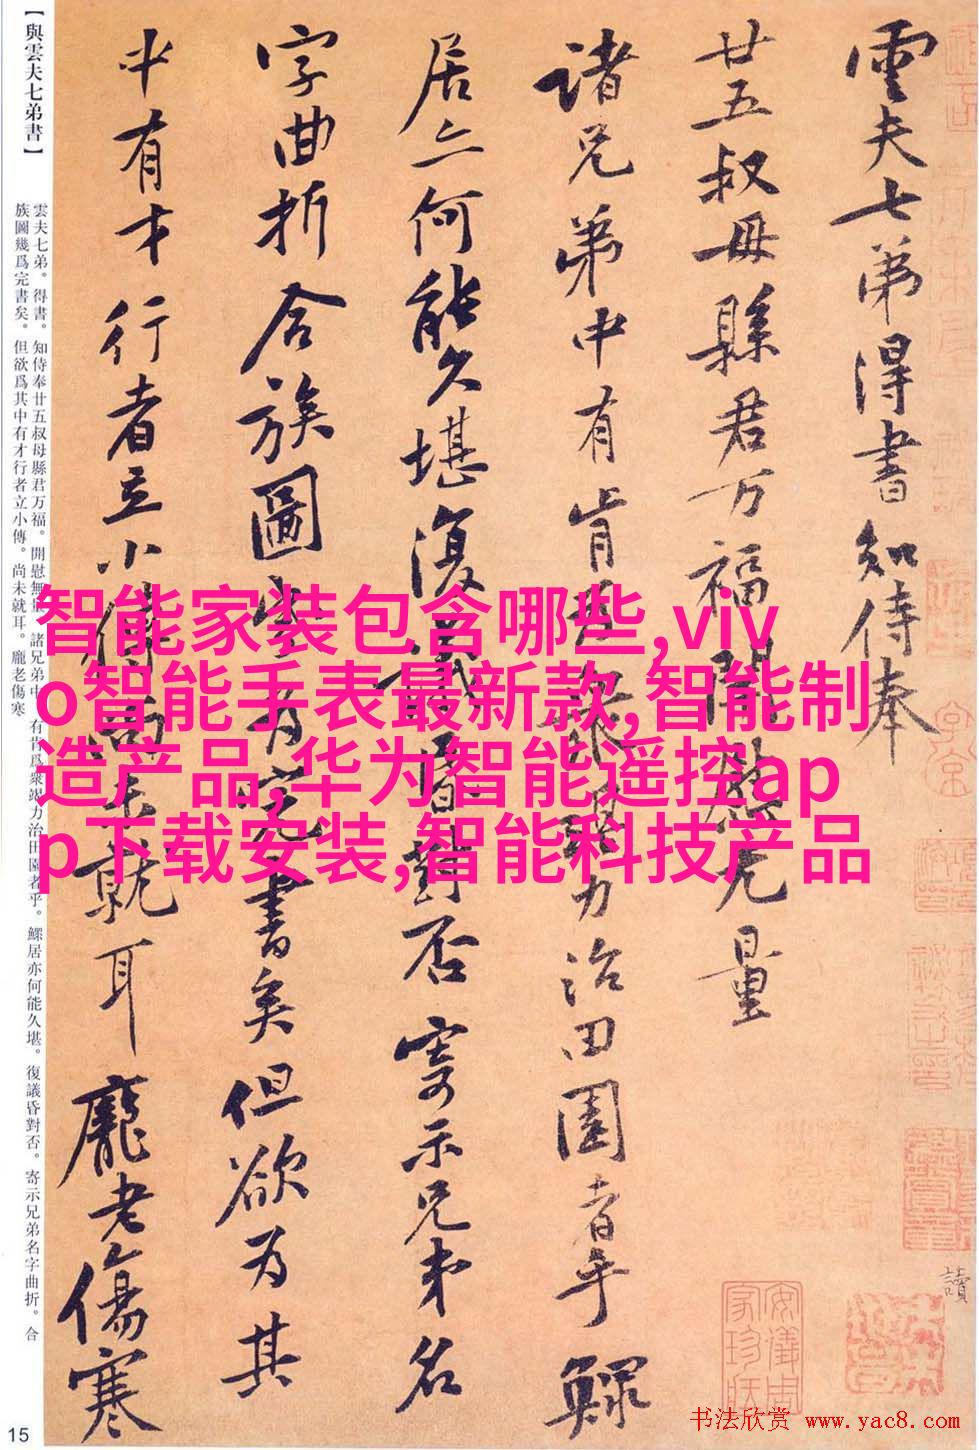 【與雲夫七弟書】
雲夫七弟。得書。知侍奉廿五叔母縣君万福。開慰無量。諸兄弟中。有肯爲衆竭力治田園者乎。鰥居亦何能久堪。復議昏對否。寄示兄弟名字曲折。合
族圖幾爲完書矣。但欲爲其中有才行者立小傳。尚未就耳。龐老傷寒
雲夫七弟得書知侍奉
廿五叔母縣君万福開慰无量
諸兄弟中有肯爲衆竭力治田園者乎鰥
居亦何能久堪復議昏對否寄示兄弟名
字曲折合族圖幾爲完書矣但欲为其
中有才行者立小傳尚未就耳龐老傷寒
智能家装包含哪些,viv
o智能手表最新款,智能制
造产品,华为智能遥控ap
p下载安装,智能科技产品
讀
安儀周
家珍藏
15
书法欣赏 www.yac8.com